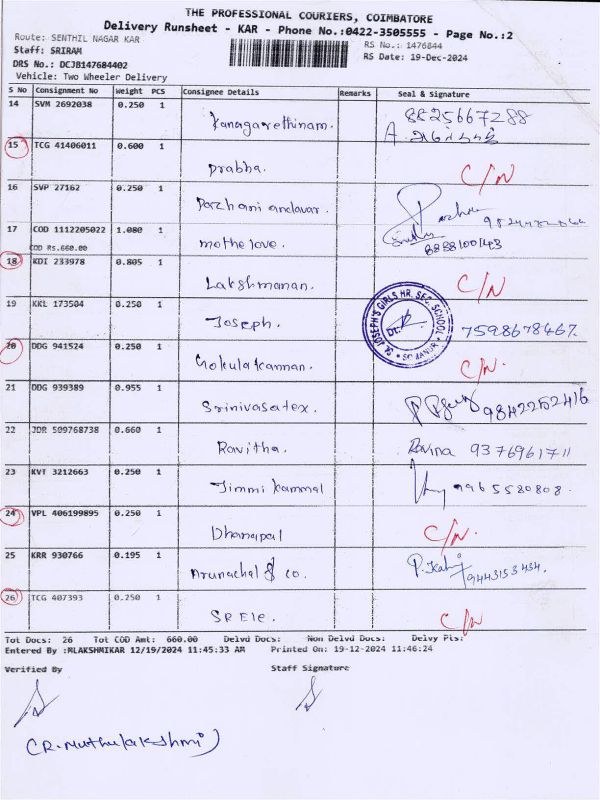 THE PROFESSIONAL COURIERS, COIMBATORE
Delivery Runsheet - KAR - Phone No.:0422-3505555 - Page No.:2
Route: SENTHIL NAGAR KAR
RS No.: 1476844
Staff: SRIRAM
RS Date: 19-Dec-2024
DRS No.: DCJB147684402
Vehicle: Two Wheeler Delivery
S No Consignment No Weight PCS Consignee Details Remarks Seal & Signature
14 SVM 2692038 0.250 1 Kanagarethinam. 8825667288
15 TCG 41406011 0.600 1 Prabha. C/N
16 SVP 27162 0.250 1 Pazhani andavar.
17 COD 1112205022 1.080 1 mothelove. 8888100143
COD RS.660.00
18 KDI 233978 0.805 1 Lakshmanan. C/N
19 KKL 173504 0.250 1 Joseph. ST. JOSEPH'S GIRLS HR. SEC. SCHOOL 7598678467.
20 DDG 941524 0.250 1 Gokulakannan. C/N.
21 DDG 939389 0.955 1 Srinivasatex. 9842252416
22 JDR 509768738 0.660 1 Ravitha. Ravina 9376961711
23 KVT 3212663 0.250 1 Jimmi kammal 9965580808.
24 VPL 406199895 0.250 1 Dhanapal C/N.
25 KRR 930766 0.195 1 Arunachal & co. 9443153434.
26 TCG 407393 0.250 1 SR Ele. C/N
Tot Docs: 26 Tot COD Amt: 660.00 Delvd Docs: Non Delvd Docs: Delvy Pts:
Entered By :MLAKSHMIKAR 12/19/2024 11:45:33 AM Printed On: 19-12-2024 11:46:24
Verified By Staff Signature
(R. Muthulakshmi)